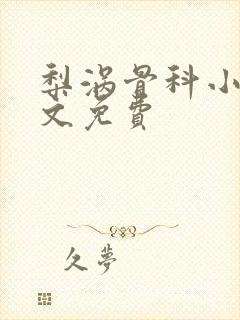 梨涡骨科小
文免费
久夢